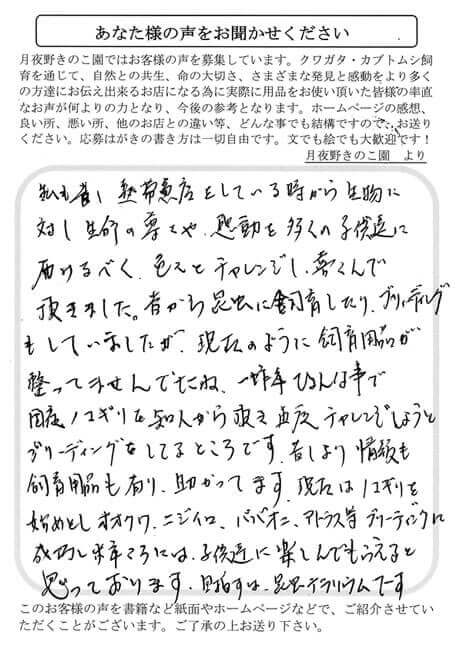 あなた様の声をお聞かせください
月夜野きのこ園ではお客様の声を募集しています。クワガタ・カブトムシ飼
育を通じて、自然との共生、命の大切さ、さまざまな発見と感動をより多く
の方達にお伝え出来るお店になる為に実際に用品をお使い頂いた皆様の率直
なお声が何よりの力となり、今後の参考となります。ホームページの感想、
良い所、悪い所、他のお店との違い等、どんな事でも結構ですので、お送り
ください。応募はがきの書き方は一切自由です。文でも絵でも大歓迎です！
月夜野きのこ園 より
私も昔、熱帯魚店をしている時から生物に
対し生命の尊さや、感動を多くの子供達に
届けるべく、色々とチャレンジし、喜んで
頂きました。昔から昆虫に飼育したり、ブリーディング
もしていましたが、現在のように飼育用品が
整ってませんでしたね、一昨年ひょんな事で
国産ノコギリを知人から頂き再度チャレンジしようと
ブリーディングをしてるところです。昔より情報も
飼育用品も有り、助かってます。現在はノコギリを
始めとしオオクワ、ニジイロ、パプキン、アトラス等ブリーディングに
成功し来年ころには、子供達に楽しんでもらえると
思っております。目指すは、昆虫テラリウムです
このお客様の声を書籍など紙面やホームページなどで、ご紹介させてい
ただくことがございます。ご了承の上お送り下さい。